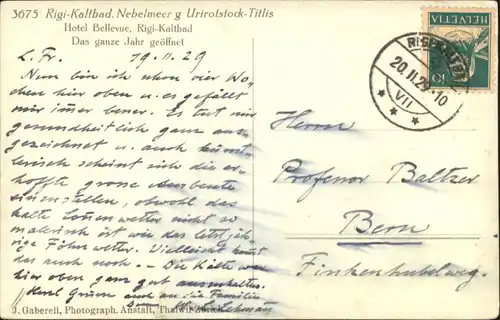 3675 Rigi-Kaltbad. Nebelmeer g Urirotstock-Titlis
Hotel Bellevue, Rigi-Kaltbad
Das ganze Jahr geöffnet
HELVETIA
10
RIGI-KALTBAD
20.II.29-10
VII
L. Fr. 19.II.29
Nun bin ich schon vier Wo-
chen hier oben u. es gefällt
mir immer besser. Es tut mir
gesundheitlich ganz aus-
gezeichnet u. auch künst-
lerisch scheint sich die er-
hoffte grosse Ausbeute
einzustellen, obwohl das
kalte Wetter nicht so
malerisch ist wie das letztjäh-
rige Föhnwetter. Vielleicht kommt
das auch noch. – Die Kälte war
hier oben ganz gut auszuhalten.
Grüsse auch an die Familie
Herrn
Professor Baltzer
Bern
Finkenhubelweg.
J. Gaberell, Photograph. Anstalt, Thalwil-Zürich